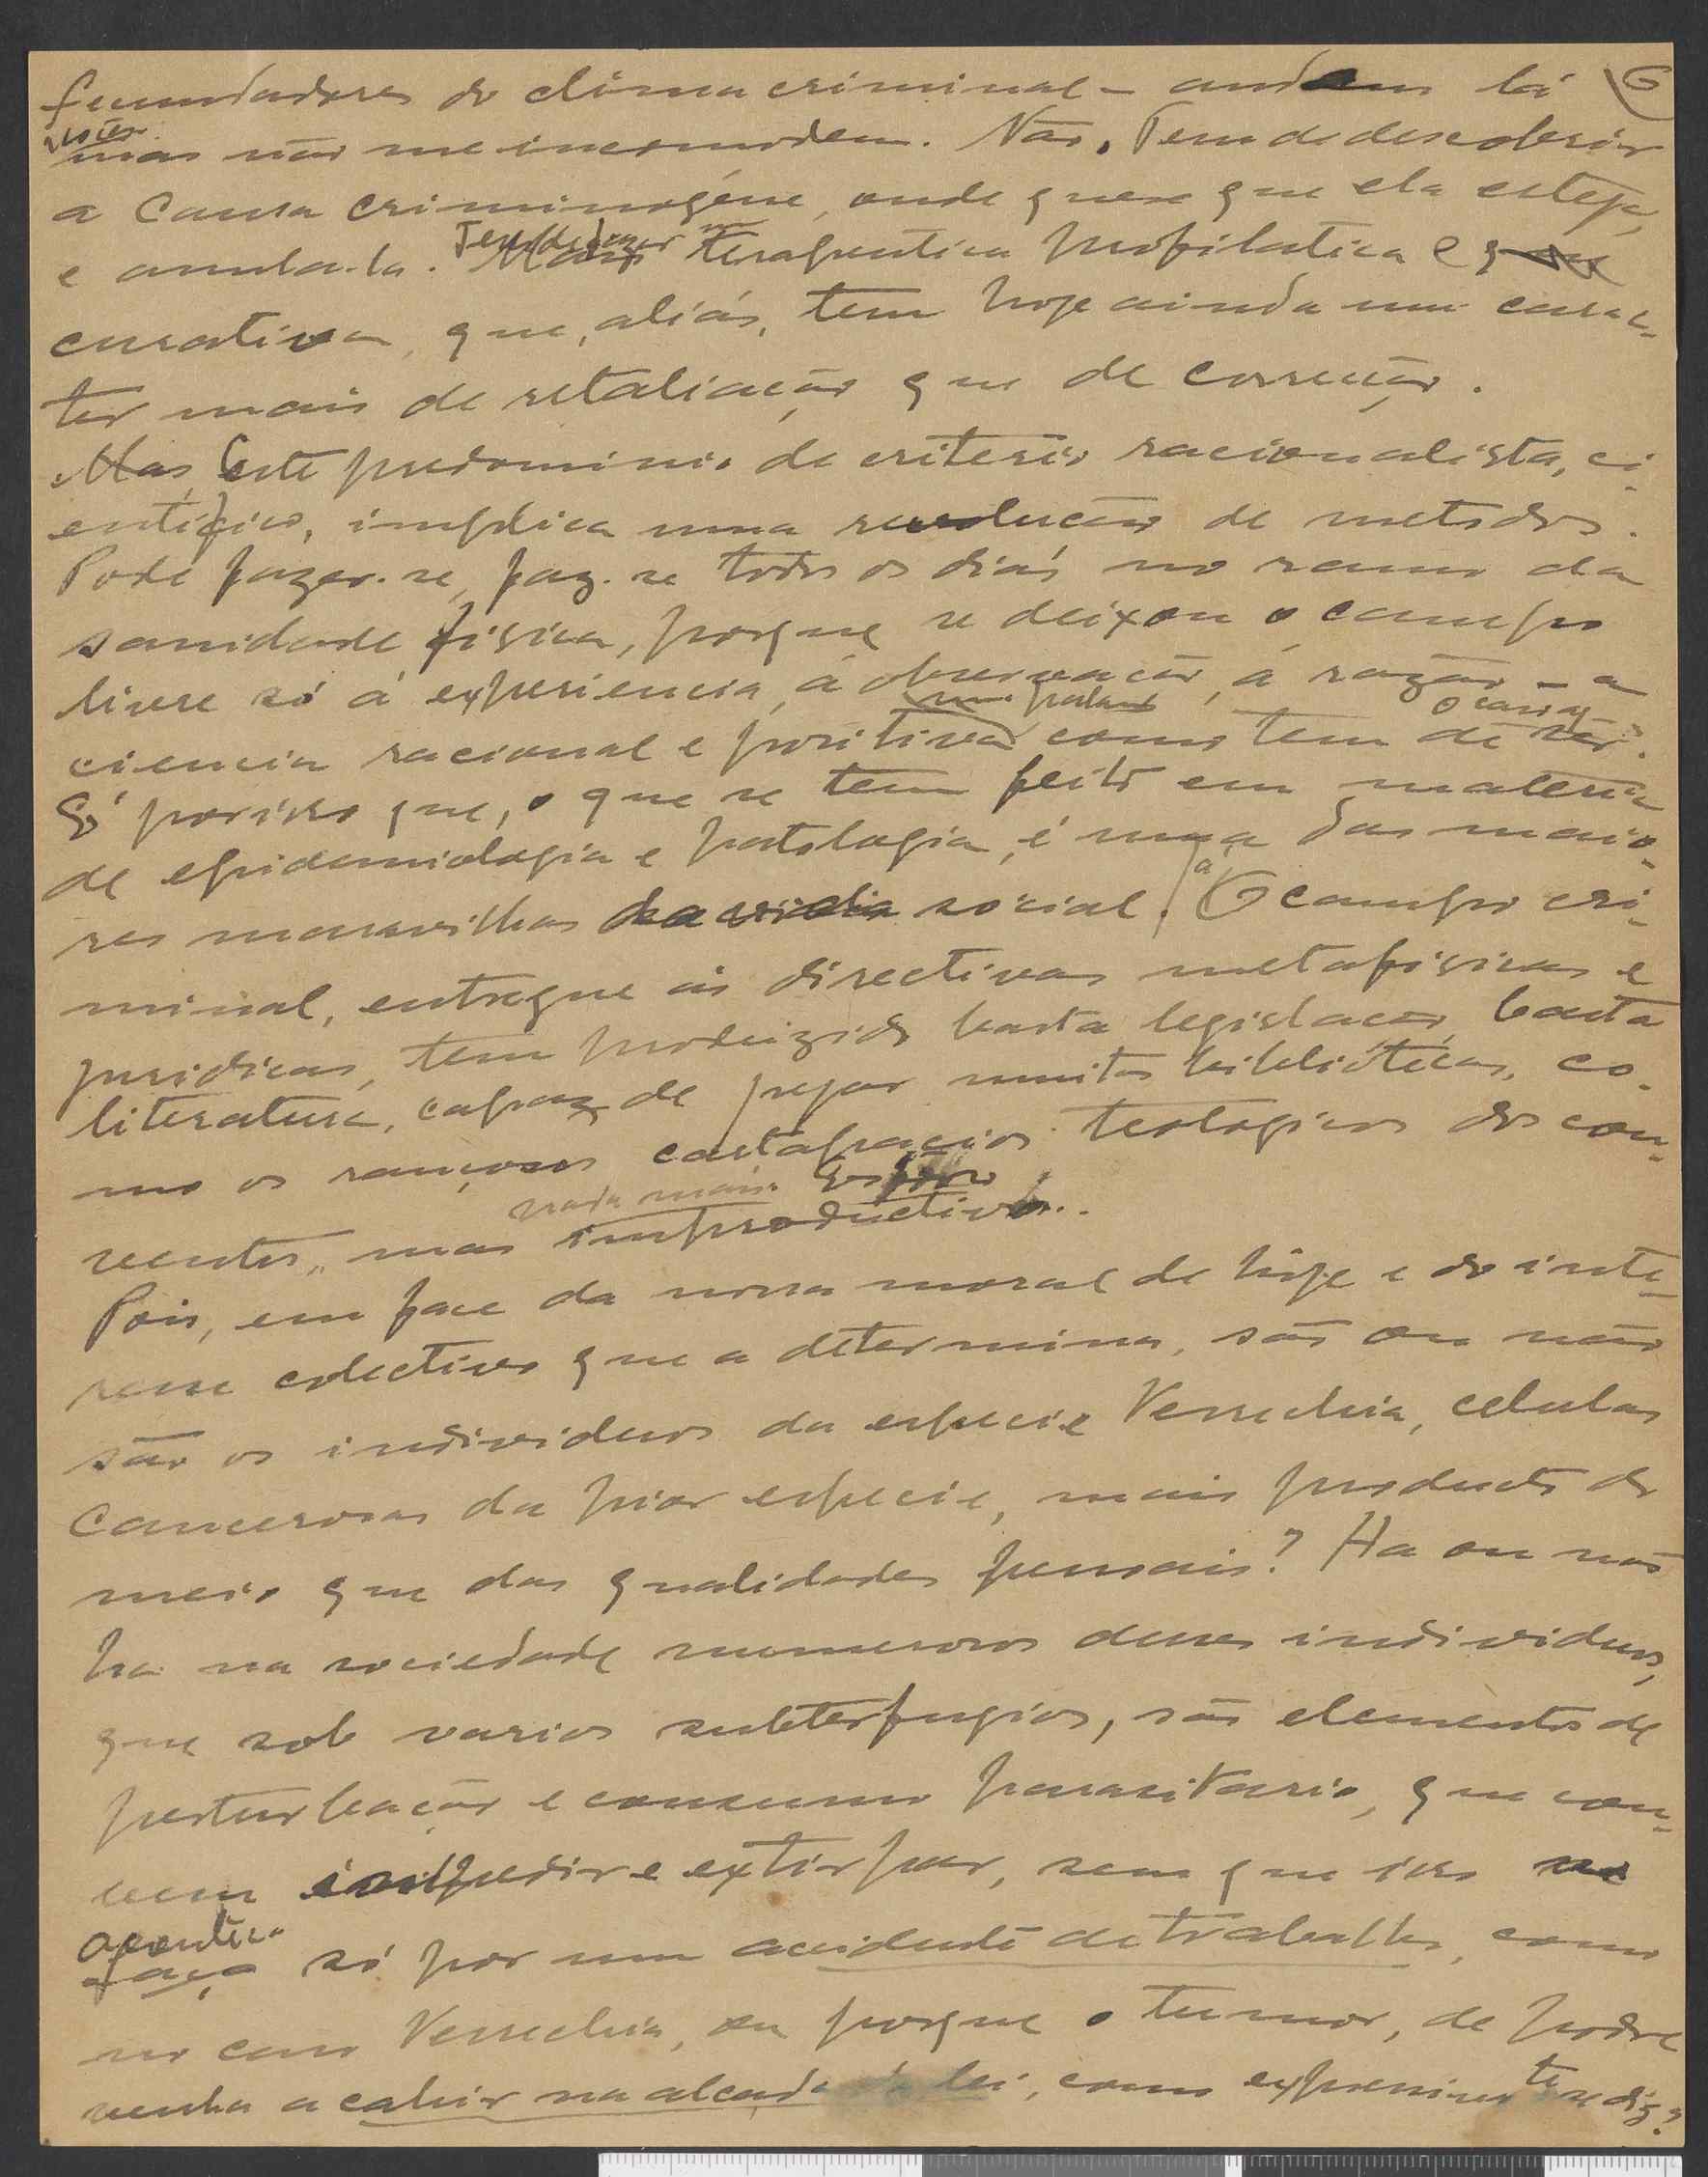 fecundadores do clima criminal – andem lá 6
mas não me incomodem. Não. Tem de descobrir
a causa criminogéne, onde quer que ela esteja,
e anula-la. Tem de fazer terapeutica profilatica e
curativa, que, aliás, tem hoje ainda um carac-
ter mais de retaliação que de correção.
Mas, este predominio de criterio racionalista, ci-
entifico, implica uma revolução de metodos.
Pode fazer-se, faz-se todos os dias no ramo da
sanidade fisica, porque se deixou o campo
livre só á experiencia, á observação, á razão – a
ciencia racional e positiva como tem de ser.
É por isso que, o que se tem feito em materia
de epidemiologia e patologia, é uma das maio-
res maravilhas da vida social. O campo cri-
minal, entregue ás directivas metafisicas e
juridicas, tem produzido basta legislação, basta
literatura, capaz de pejar muitas bibliótecas, co-
mo os rançosos cartapacios teologicos dos con-
nada mais
ventos, mas improductivo..
Pois, em face da nossa moral de hoje e do inte-
resse colectivo que a determina, são ou não
são os individuos da especie Verrechia, celulas
cancerosas da pior especie, mais producto do
meio que das qualidades pessoais? Ha ou não
ha na sociedade numerosos desses individuos,
que sob varios subterfugios, são elementos de
perturbação e consumo parasitario, que con-
vem impedir e extirpar, sem que isso se
aconteça
faça só por um accidente de trabalho, como
no caso Verrechia, ou porque o tumor, de podre
venha a cahir na alçada da lei, como expressivamente se diz?